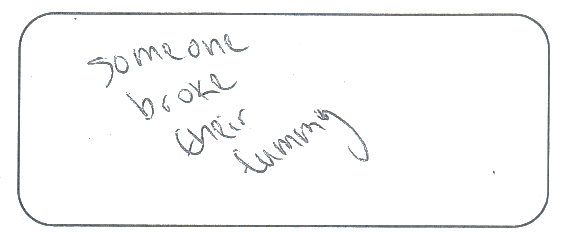 someone
broke
their
tummy